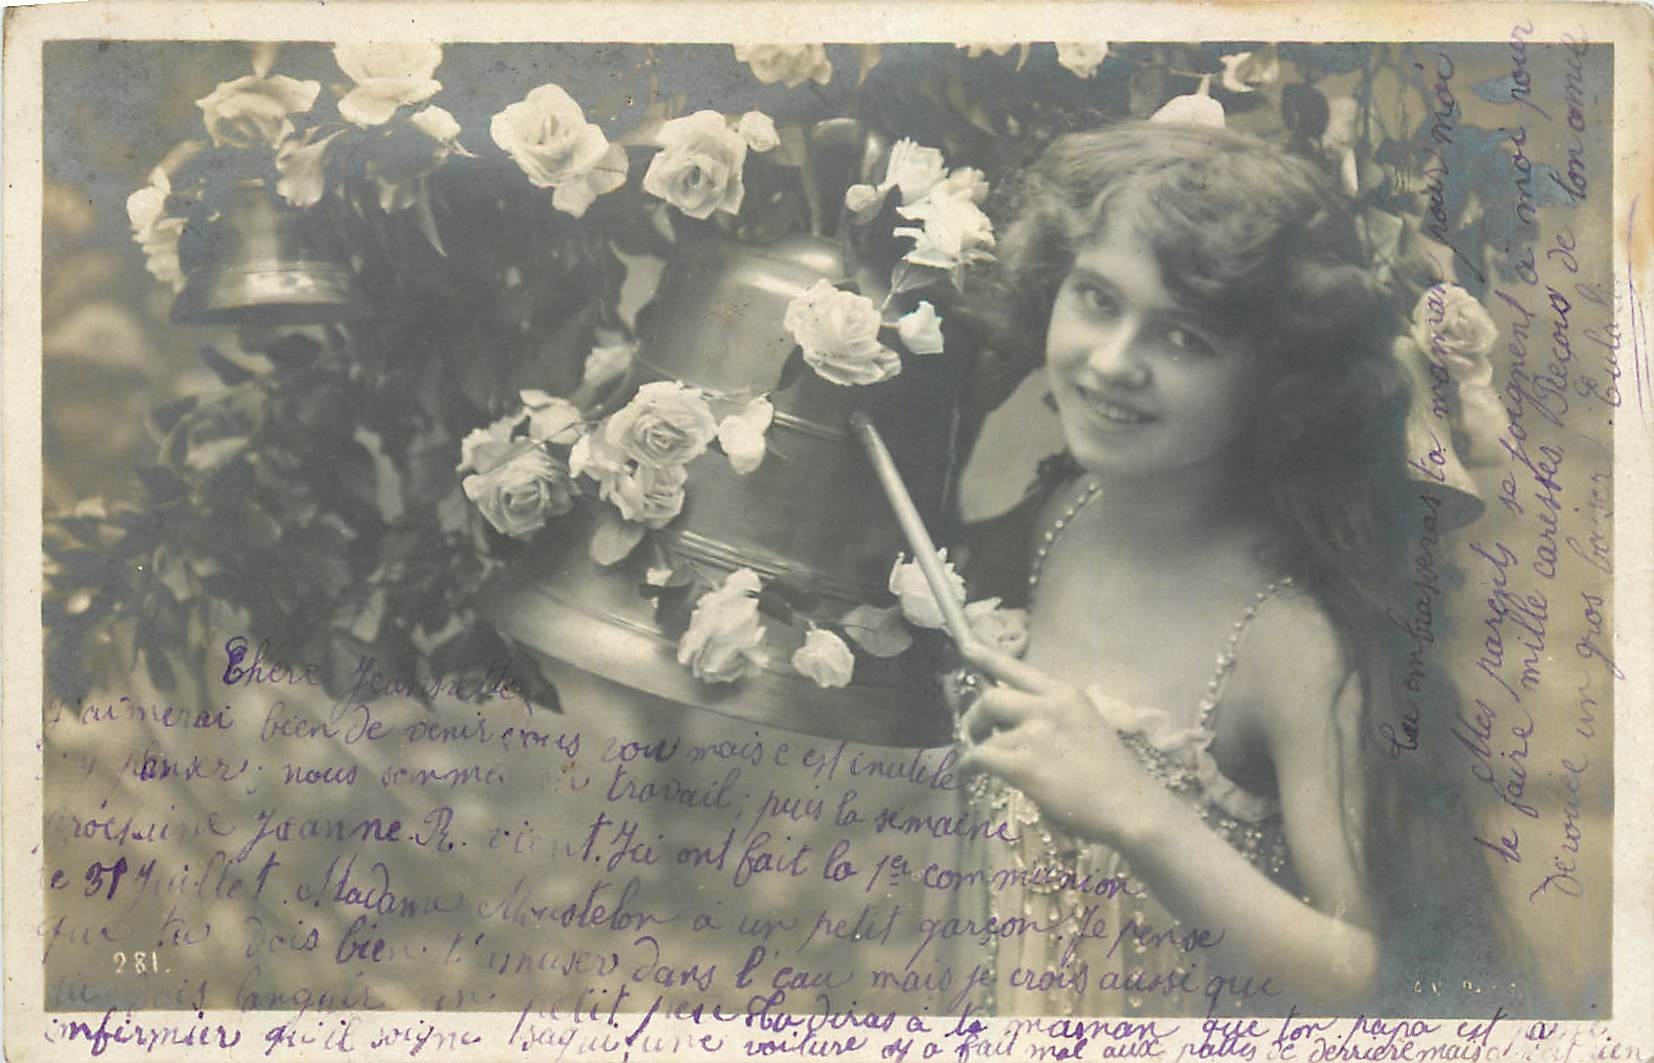 Chère Jeannette
J'aimerai bien de venir vous voir mais c est inutile
d'y panser; nous somme en travail; puis la semaine
procheine Jeanne R. vient. Ici ont fait la 1re communion
le 31 Juillet. Madame Moustelon a un petit garçon. Je pense
que tu dois bien t'amuser dans l'eau mais je crois aussi que
tu dois languir un petit peu Tu diras à ta maman que ton papa est
infirmier qu'il soigne une voiture y a fait mal aux pattes de derrière mais bien
281.
Tu embrasseras ta maman pour moi
Mes parents se joignent à moi pour
te faire mille caresses. Recois de ton amie
Dévouée un gros baiser